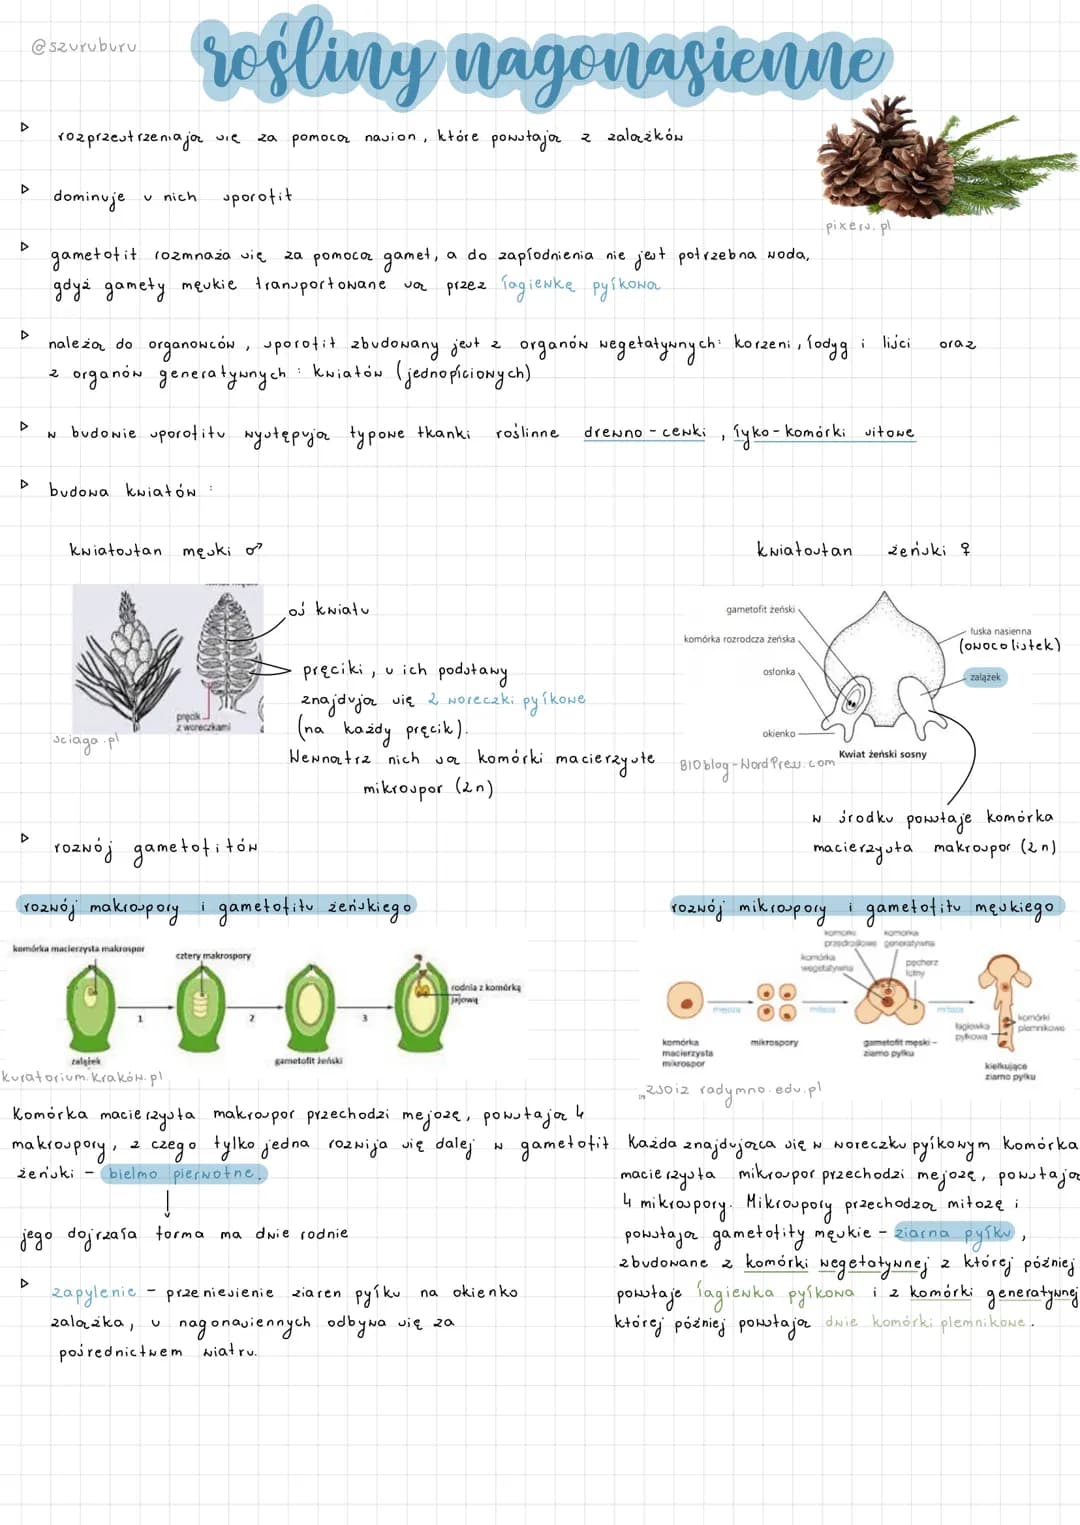 @szuruburu
rośliny nagonasienne
rozprzestrzeniają się za pomocą nasion, które powstają z zalążków
pixers.pl
dominuje u nich sporofit
gametofit rozmnaża się za pomocą gamet, a do zapłodnienia nie jest potrzebna woda,
gdyż gamety męskie transportowane są przez łagiewkę pyłkową
należą do organowców, sporofit zbudowany jest z organów wegetatywnych: korzeni, łodyg i liści oraz
z organów generatywnych: kwiatów (jednopłciowych)
w budowie sporofitu występują typowe tkanki roślinne drewno - cewki, łyko - komórki sitowe
budowa kwiatów:
kwiatostan męski ♂
oś kwiatu
pręciki, u ich podstawy
znajdują się 2 woreczki pyłkowe
(na każdy pręcik).
Wewnątrz nich są komórki macierzyste
mikrospor (2n)
pręcik
z woreczkami
sciaga.pl
kwiatostan żeński ♀
gametofit żeński
komórka rozrodcza żeńska
osłonka
okienko
łuska nasienna
(owocolistek)
zalążek
Kwiat żeński sosny
BIOblog - WordPress.com
w środku powstaje komórka
macierzysta makrospor (2n)
rozwój gametofitów
rozwój makrospory i gametofitu żeńskiego
komórka macierzysta makrospor
cztery makrospory
rodnia z komórką
jajową
1
2
3
zalążek
gametofit żeński
kuratorium.kraków.pl
Komórka macierzysta makrospor przechodzi mejozę, powstają 4
makrospory, z czego tylko jedna rozwija się dalej w gametofit
żeński - bielmo pierwotne.
jego dojrzała forma ma dwie rodnie
zapylenie - przeniesienie ziaren pyłku na okienko
zalążka, u nagonasiennych odbywa się za
pośrednictwem wiatru.
rozwój mikrospory i gametofitu męskiego
komórki
przedroślowe
komórka
generatywna
komórka
wegetatywna
pęcherz
lotny
mejoza
mitoza
mitoza
łagiewka
pyłkowa
komórki
plemnikowe
komórka
macierzysta
mikrospor
mikrospory
gametofit męski -
ziarno pyłku
kiełkujące
ziarno pyłku
zsoiz radymno.edu.pl
Każda znajdująca się w woreczku pyłkowym komórka
macierzysta mikrospor przechodzi mejozę, powstają
4 mikrospory. Mikrospory przechodzą mitozę i
powstają gametofity męskie - ziarna pyłku,
zbudowane z komórki wegetatywnej z której później
powstaje łagiewka pyłkowa i z komórki generatywnej
której później powstają dwie komórki plemnikowe.